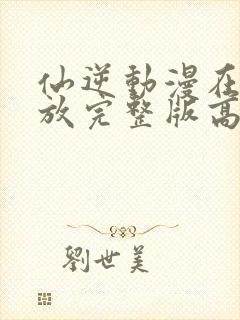 仙逆動漫在
放完整版高
劉世美